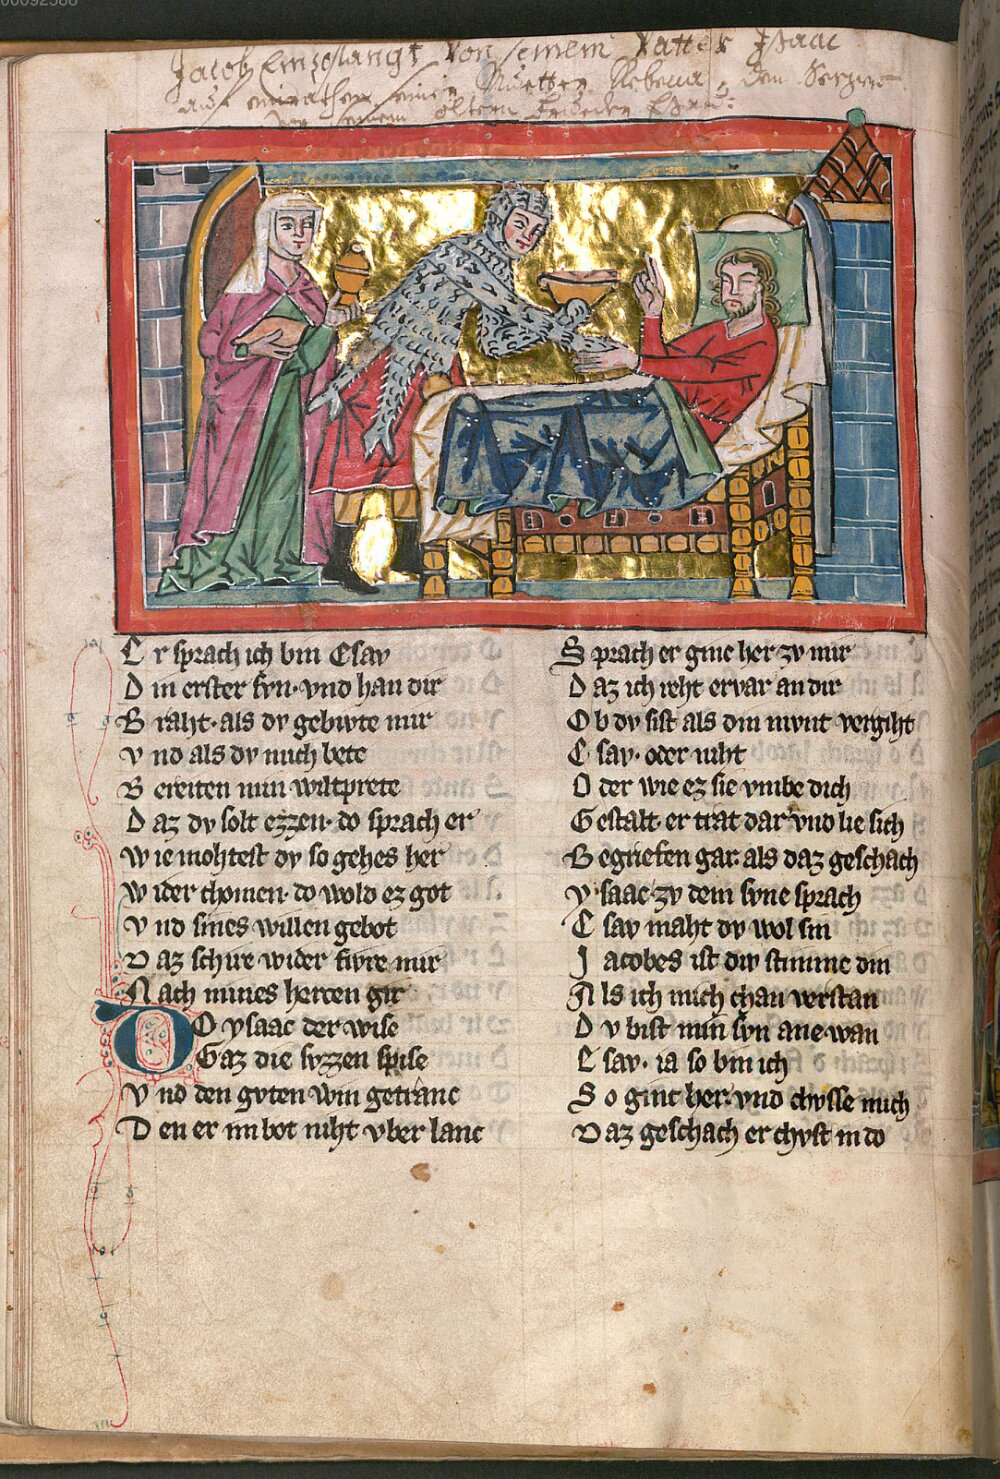 00092588
Jacob Empfangt von seinem Vatter Isaac
auf einrathen seiner Muetter Rebecca, den Seegen
vor seinem eltern Brueder Esau:
E r sprach ich bin Esav
D in erster svn· vnd han dir
B raht· als dv gebivte mir
V nd als dv mich bete
B ereiten min wiltprete
D az dv solt ezzen· do sprach er
W ie mohtest dv so gehes her
W ider chomen· do wold ez got
V nd sines willen gebot
D az schire wider fvre mir
N ach mines hercen gir
DO ysaac der wise
Gaz die svzzen spise
V nd den gvten win getranc
D en er im bot niht vber lanc
S prach er ginc her zv mir
D az ich reht ervar an dir
O b dv sist als din mvnt vergiht
E sav· oder niht
O der wie ez sie vmbe dich
G estalt· er trat dar vnd lie sich
B egriefen gar· als daz geschach
Y saac zv dem svne sprach
E sav maht dv wol sin
J acobes ist div stimme din
A ls ich mich chan verstan
D v bist min svn ane wan
E sav· ia so bin ich
S o ginc her· vnd chvsse mich
D az geschach er chvst in do